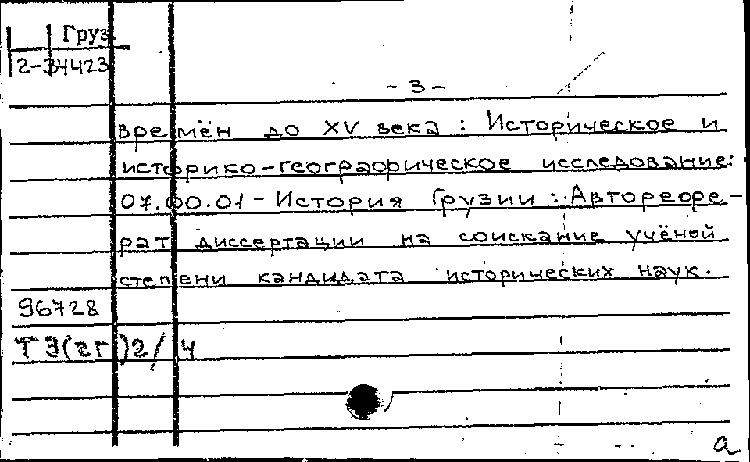 Груз.
2-34423
- 3 -
времён до XV века : Историческое и
историко-географическое исследование:
07.00.01 - История Грузии : Авторефе-
рат диссертации на соискание учёной
степени кандидата исторических наук.
96728
Т3(2Г)2/4
а